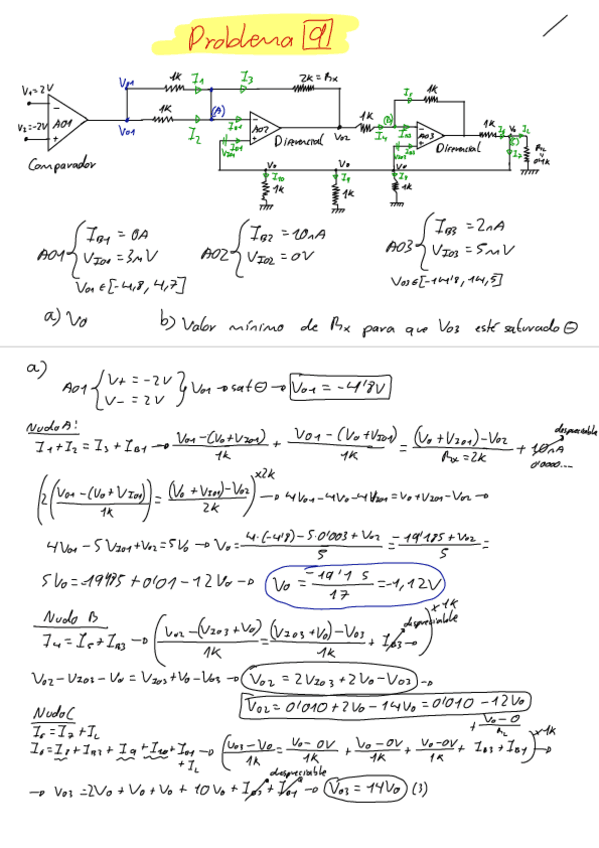 Problema 9
V1=2V
V2=-2V
AO1
Comparador
VO1
VO1
1K
I1
I3
2K = Rx
1K
I2
(A)
IB1
AO2
VIO1
IB1
Diferencial
VO2
1K
(B)
I4
I5
1K
AO3
Diferencial
1K
Vo
IL
I7
Vo
I10
1K
Vo
I9
1K
Vo
1K
AO1 { IB1 = 0A
VIO1 = 3mV
VO1 ∈ [-4,8, 4,7]
AO2 { IB2 = 10nA
VIO2 = 0V
AO3 { IB3 = 2nA
VIO3 = 5mV
VO3 ∈ [-14'8, 14,5]
a) Vo
b) Valor mínimo de Rx para que VO3 esté saturado ⊖
a)
AO1 { V+ = -2V
V- = 2V } VO1 → sat ⊖ → VO1 = -4'8V
Nudo A:
I1 + I2 = I3 + IB1 → VO1-(Vo+VIO1)/1K + VO1-(Vo+VIO1)/1K = (Vo+VIO1)-VO2/Rx=2K + 10nA despreciable
0'0000...
(2(VO1-(Vo+VIO1)/1K) = (Vo+VIO1)-VO2/2K) x2K → 4VO1-4Vo-4VIO1 = Vo+VIO1-VO2 →
4VO1-5VIO1+VO2=5Vo → Vo = 4·(-4'8)-5·0'003+VO2/5 = -19'185+VO2/5 =
5Vo = -19'185+0'01-12Vo → Vo = -19'15/17 = -1,12V
Nudo B
I4 = I5 + IB3 → (VO2-(VIO3+Vo)/1K = (VIO3+Vo)-VO3/1K + IB3 →) x1K despreciable
VO2-VIO3-Vo = VIO3+Vo-VO3 → VO2 = 2VIO3+2Vo-VO3 →
VO2 = 0'010+2Vo-14Vo = 0'010-12Vo
Nudo C
I6 = I7 + IL
I6 = I8 + IB3 + I9 + I10 + IB1 + IL → (VO3-Vo/1K = Vo-0V/1K + Vo-0V/1K + Vo-0V/1K + IB3 + IB1 + Vo-0/RL) x1K →
→ VO3 = 2Vo + Vo + Vo + 10Vo + IB3 + IB1 despreciable → VO3 = 14Vo (3)